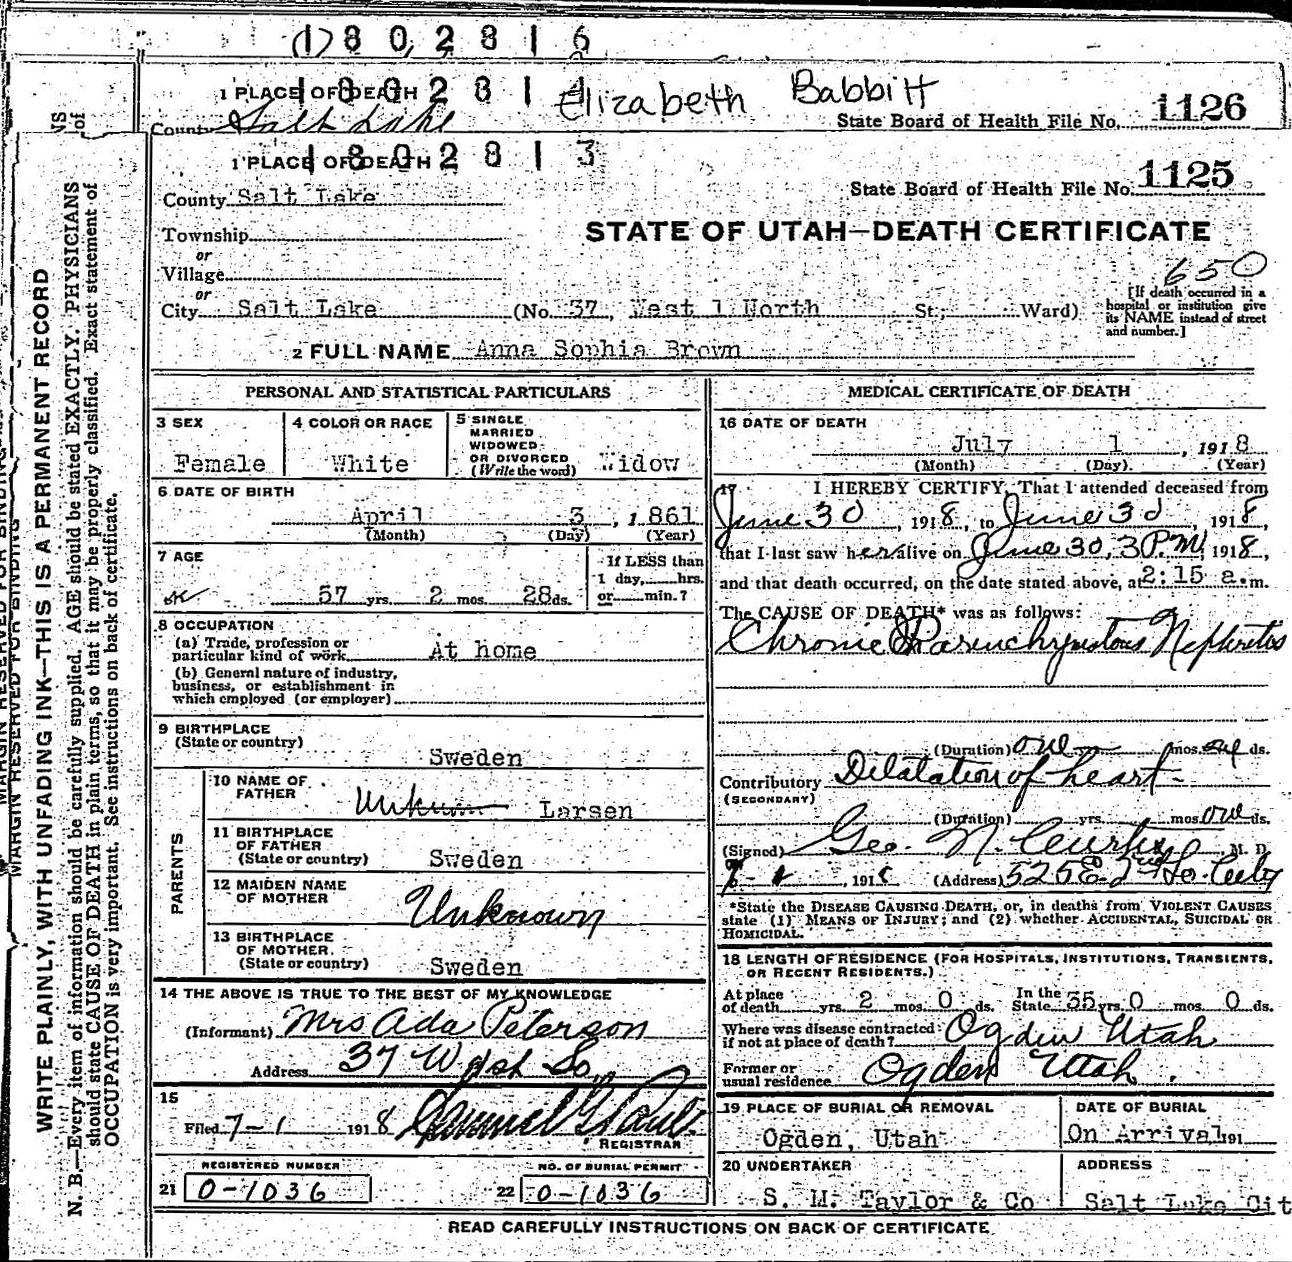 1802816
1802814
1 PLACE OF DEATH
Elizabeth Babbitt
County Salt Lake
State Board of Health File No. 1126
1802813
1 PLACE OF DEATH
County Salt Lake
State Board of Health File No. 1125
Township
STATE OF UTAH—DEATH CERTIFICATE
or
Village
650
or
City Salt Lake (No. 37, West 1 North St.; Ward)
[If death occurred in a
hospital or institution give
its NAME instead of street
and number.]
2 FULL NAME Anna Sophia Brown
PERSONAL AND STATISTICAL PARTICULARS
3 SEX
Female
4 COLOR OR RACE
White
5 SINGLE
MARRIED
WIDOWED
OR DIVORCED
(Write the word) Widow
6 DATE OF BIRTH
April 3, 1861
(Month) (Day) (Year)
7 AGE
57 yrs. 2 mos. 28 ds.
If LESS than
1 day,......hrs.
or......min.?
8 OCCUPATION
(a) Trade, profession or
particular kind of work At home
(b) General nature of industry,
business, or establishment in
which employed (or employer)
9 BIRTHPLACE
(State or country)
Sweden
PARENTS
10 NAME OF
FATHER
Larsen
11 BIRTHPLACE
OF FATHER
(State or country) Sweden
12 MAIDEN NAME
OF MOTHER
Unknown
13 BIRTHPLACE
OF MOTHER
(State or country) Sweden
14 THE ABOVE IS TRUE TO THE BEST OF MY KNOWLEDGE
(Informant) Mrs Ada Peterson
Address 37 W 1st So.
15
Filed 7-1 1918
REGISTRAR
REGISTERED NUMBER
21 0-1036
NO. OF BURIAL PERMIT
22 0-1036
MEDICAL CERTIFICATE OF DEATH
16 DATE OF DEATH
July 1, 1918
(Month) (Day) (Year)
17 I HEREBY CERTIFY, That I attended deceased from
June 30, 1918, to June 30, 1918,
that I last saw her alive on June 30, 3 P.M, 1918,
and that death occurred, on the date stated above, at 2:15 a.m.
The CAUSE OF DEATH* was as follows:
Chronic Parenchymatous Nephritis
(Duration) one mos. ds.
Contributory Dilatation of heart
(SECONDARY)
(Duration) yrs. mos. one ds.
(Signed) Geo. N. Curtis M. D.
, 1918 (Address) 525 E. 2nd So. City
*State the DISEASE CAUSING DEATH, or, in deaths from VIOLENT CAUSES
state (1) MEANS OF INJURY; and (2) whether ACCIDENTAL, SUICIDAL OR
HOMICIDAL.
18 LENGTH OF RESIDENCE (FOR HOSPITALS, INSTITUTIONS, TRANSIENTS,
OR RECENT RESIDENTS.)
At place
of death yrs. 2 mos. 0 ds. In the
State 35 yrs. 0 mos. 0 ds.
Where was disease contracted
if not at place of death? Ogden Utah
Former or
usual residence Ogden Utah.
19 PLACE OF BURIAL OR REMOVAL
Ogden, Utah
DATE OF BURIAL
On Arrival, 191
20 UNDERTAKER
S. M. Taylor & Co
ADDRESS
Salt Lake Cit
READ CAREFULLY INSTRUCTIONS ON BACK OF CERTIFICATE.
MARGIN RESERVED FOR BINDING
WRITE PLAINLY, WITH UNFADING INK—THIS IS A PERMANENT RECORD
N. B.—Every item of information should be carefully supplied. AGE should be stated EXACTLY. PHYSICIANS
should state CAUSE OF DEATH in plain terms, so that it may be properly classified. Exact statement of
OCCUPATION is very important. See instructions on back of certificate.